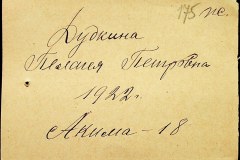 175 ж.
Дудкина
Пелагея Петровна
1922 г.
Акима - 18